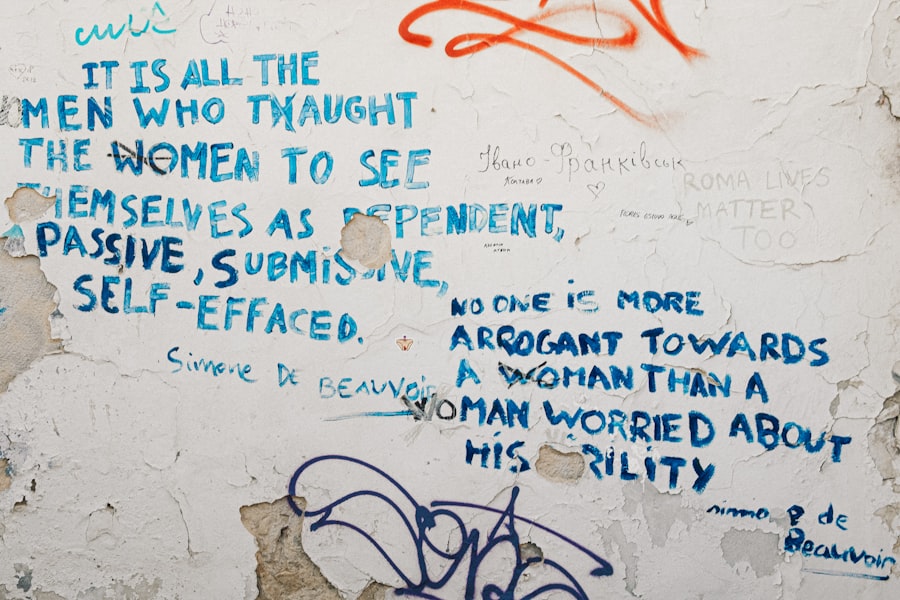 IT IS ALL THE
MEN WHO THAUGHT
THE WOMEN TO SEE
THEMSELVES AS DEPENDENT,
PASSIVE, SUBMISSIVE,
SELF-EFFACED.
Simone DE BEAUVOIR
Івано-Франківськ
ROMA LIVES
MATTER
TOO
NO ONE iS MORE
ARROGANT TOWARDS
A WOMAN THAN A
WOMAN WORRIED ABOUT
HIS VIRILITY
de
Beauvoir